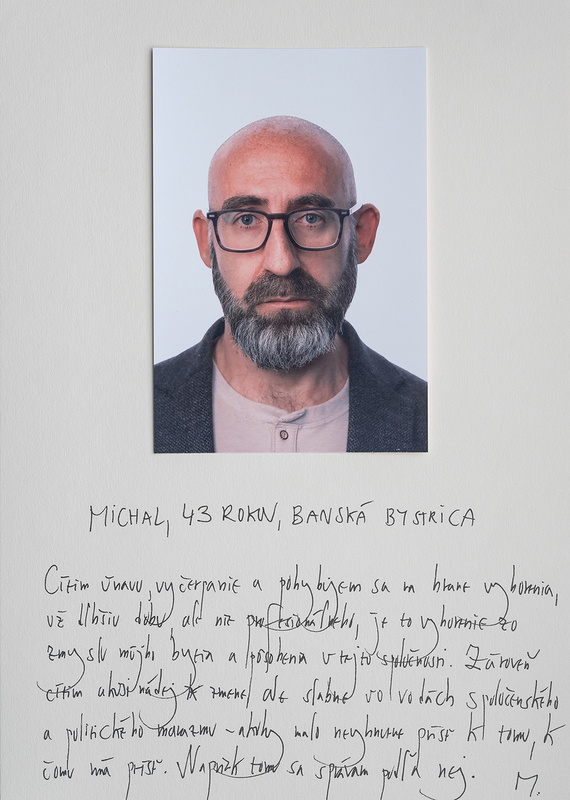 MICHAL, 43 ROKOV, BANSKÁ BYSTRICA
Cítim únavu, vyčerpanie a pohybujem sa na hrane vyhorenia,
už dlhšiu dobu ale nie profesionálneho, je to vyhorenie zo
zmyslu môjho bytia a pôsobenia v tejto spoločnosti. Zároveň
cítim akúsi nádej k zmene, ale slabne vo vodách spoločenského
a politického marazmu - akoby malo nevyhnutne prísť k tomu, k
čomu má prísť. Napriek tomu sa správam podľa nej.
M.